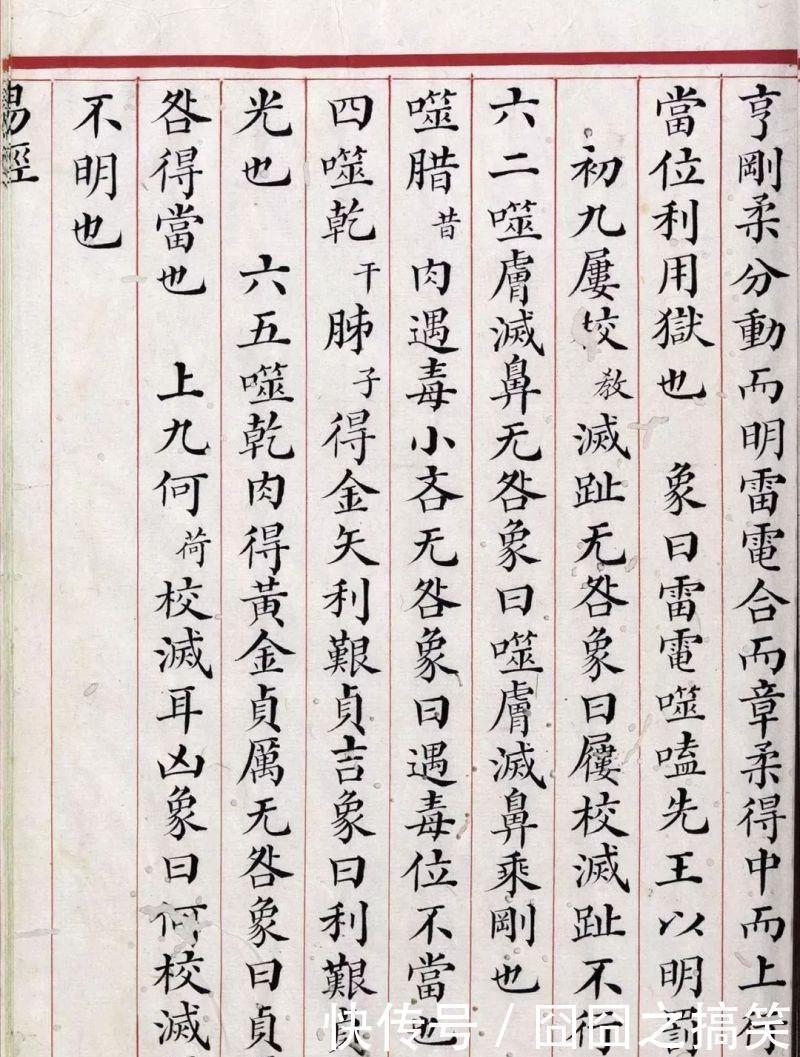 亨剛柔分動而明雷電合而章柔得中而上行
當位利用獄也　象曰雷電噬嗑先王以明罰
初九屢校教滅趾无咎象曰屨校滅趾不行
六二噬膚滅鼻无咎象曰噬膚滅鼻乘剛也
噬腊昔肉遇毒小吝无咎象曰遇毒位不當也
四噬乾干胏子得金矢利艱貞吉象曰利艱貞
光也　六五噬乾肉得黃金貞厲无咎象曰貞
咎得當也　上九何荷校滅耳凶象曰何校滅
不明也
易經
快传号／囧囧之搞笑